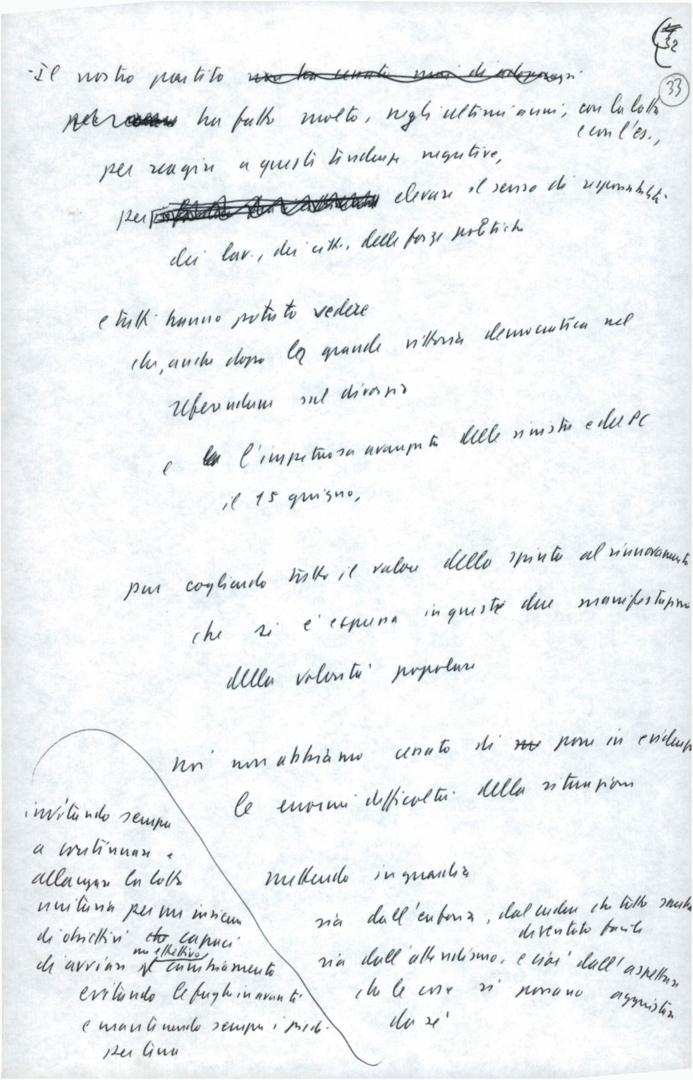 32
33
- Il nostro partito
ha fatto molto, negli ultimi anni, con la lotta
e con l'es.,
per reagire a questi tendenze negative,
per elevare il senso di responsabilità
dei lav., dei citt., delle forze politiche
e tutti hanno potuto vedere
che, anche dopo la grande vittoria democratica nel
referendum sul divorzio
e l'impetuosa avanzata delle sinistre e del PC
il 15 giugno,
pur cogliendo tutto il valore della spinta al rinnovamento
che si è espressa in queste due manifestazioni
della volontà popolare
noi non abbiamo cessato di porre in evidenza
le enormi difficoltà della situazione
mettendo in guardia
sia dall'euforia, dal credere che tutto
diventato facile
sia dall'attendismo, e cioè dall'aspettare
che le cose si possano aggiustare
da sé
invitando sempre
a continuare e
allargare la lotta
unitaria per un insieme
di obiettivi capaci
di avviare un effettivo cambiamento
evitando le fughe in avanti
e mantenendo sempre i piedi
per terra